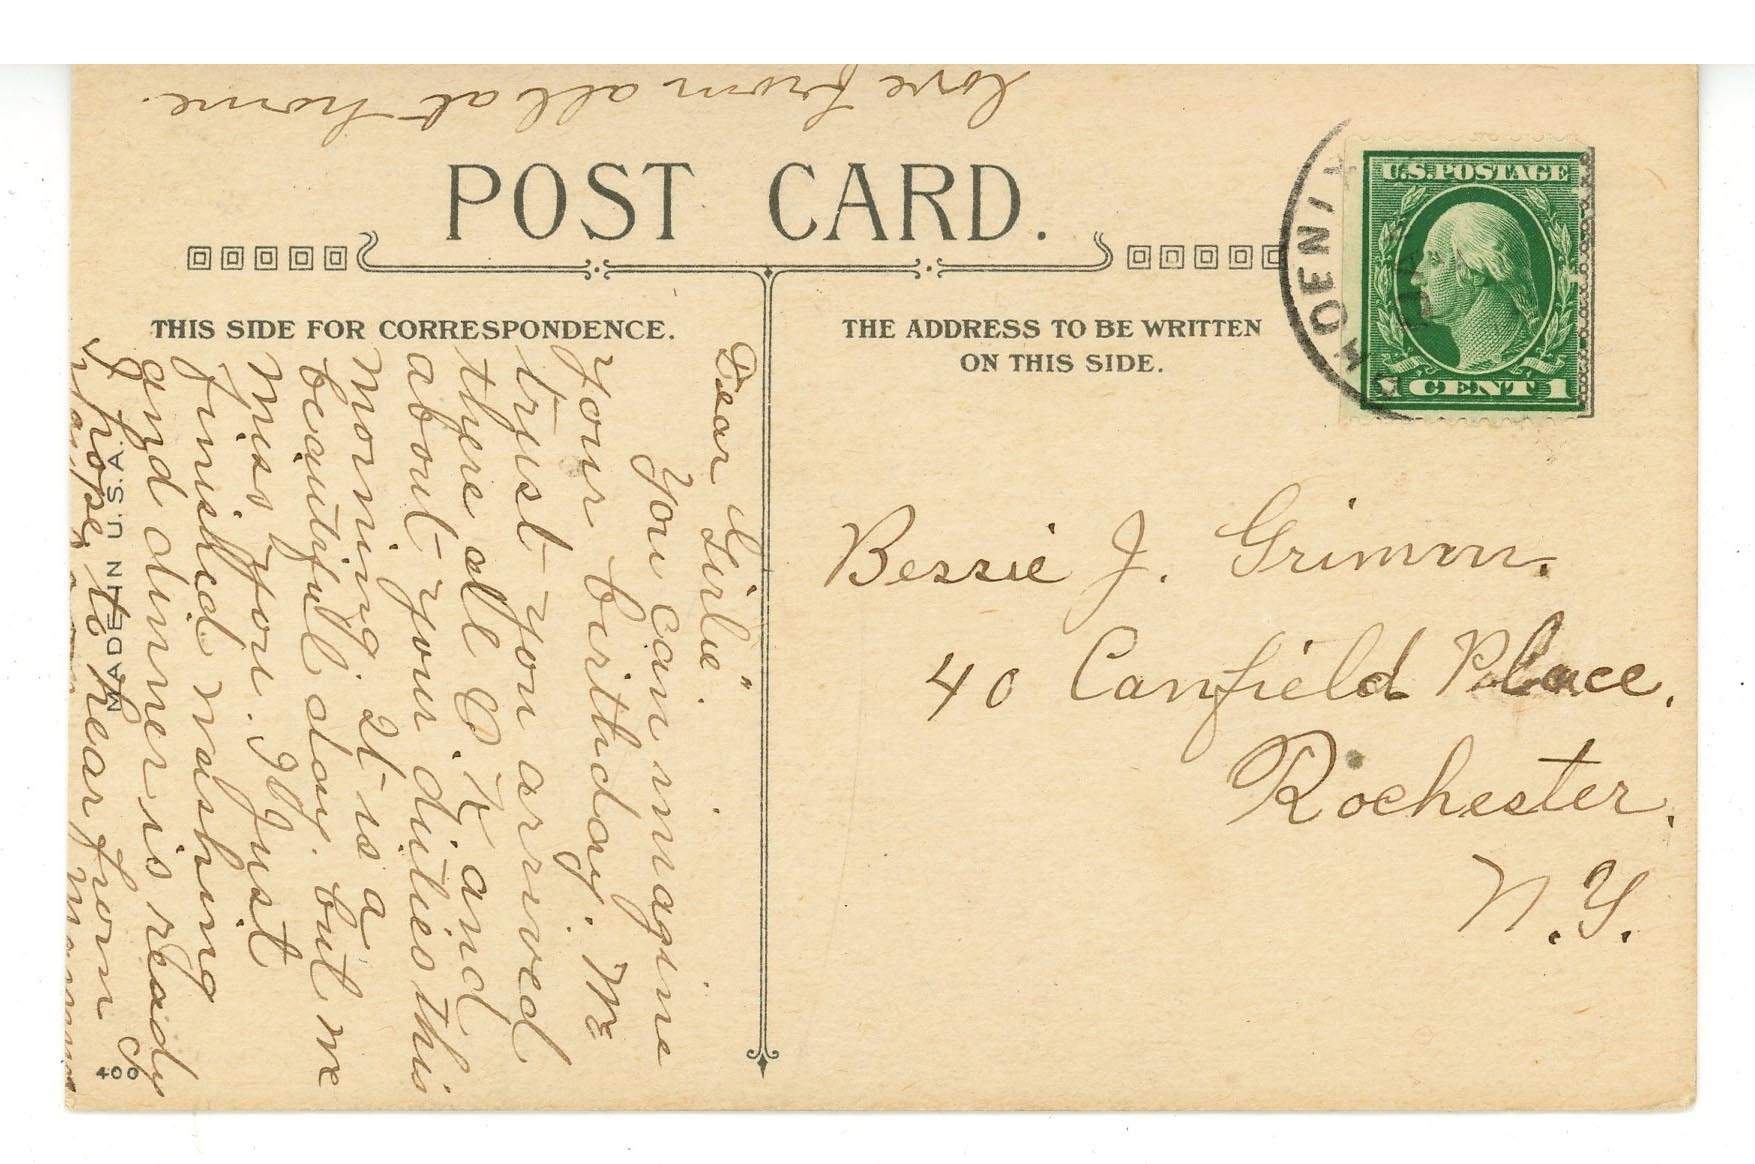 POST CARD.
THIS SIDE FOR CORRESPONDENCE.
THE ADDRESS TO BE WRITTEN
ON THIS SIDE.
U.S. POSTAGE
1 CENT 1
PHOENIX
Bessie J. Grimon.
40 Canfield Place.
Rochester.
N.Y.
"Dear Girlie".
You can imagine
your birthday. We
trust you arrived
there all O.K. and
about your duties this
morning. It is a
beautiful day. but we
miss you. I've Just
finished washing
and dinner is ready
I hope to hear from
love from all at home.
MADE IN U.S.A.
400